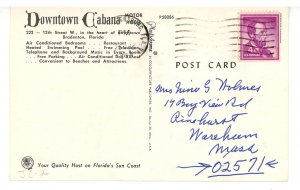 Downtown Cabana MOTOR HOTEL
222 - 12th Street W., in the heart of Downtown
Bradenton, Florida
Air Conditioned Bedrooms . . . Restaurant . . .
Heated Swimming Pool . . . Free Television,
Telephone and Background Music in Every Room
. . . Free Parking . . . Air Conditioned
. . . Convenient to Beaches and Attractions.
P29006
POST CARD
Mrs Nino G Holmes
17 Bay View Rd
Pinehurst
Wareham
Mass
02571
Your Quality Host on Florida's Sun Coast